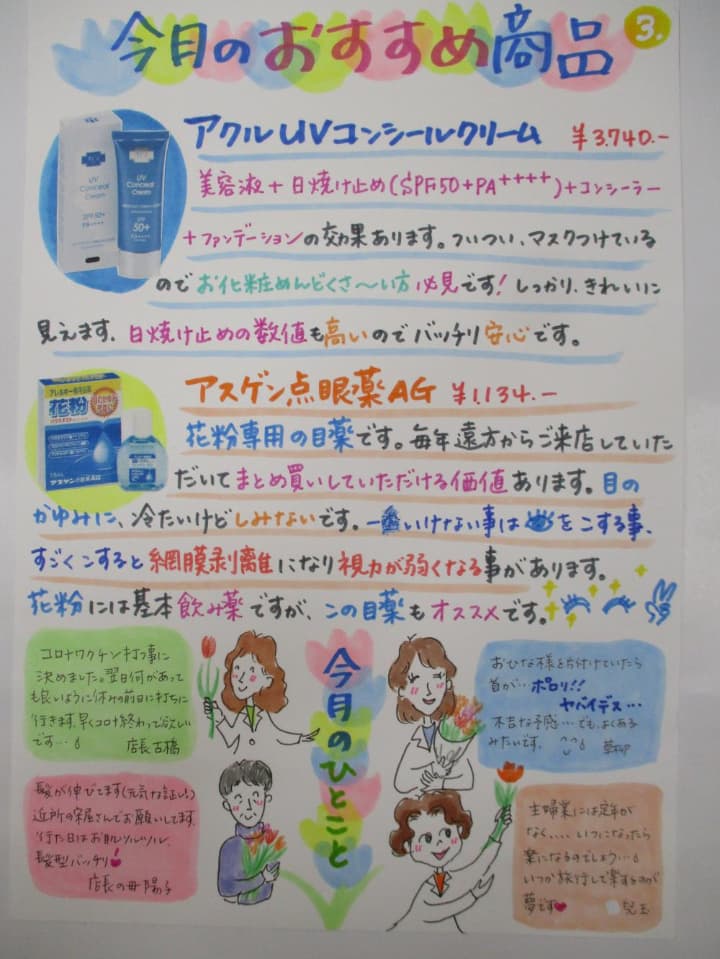 今月のおすすめ商品
3.
アクルUVコンシールクリーム ¥3.740.-
美容液+日焼け止め(SPF50+PA++++)+コンシーラー
+ファンデーションの効果あります。ついつい、マスクつけている
のでお化粧めんどくさ〜い方必見です!しっかり、きれいに
見えます、日焼け止めの数値も高いのでバッチリ安心です。
UV
Conceal
Cream
SPF 50+
PA++++
UV
Conceal
Cream
50+
アスゲン点眼薬AG ¥1.134.-
花粉専用の目薬です。毎年遠方からご来店していた
だいてまとめ買いしていただける価値あります。目の
かゆみに、冷たいけどしみないです。一番いけない事は をこする事、
すごくこすると網膜剥離になり視力が弱くなる事があります。
花粉には基本飲み薬ですが、この目薬もオススメです。
花粉
アスゲン点眼薬AG
今月のひとこと
コロナワクチン打つ事に
決めました。翌日何があって
も良いように休みの前日に打ちに
行きます。早くコロナ終わって欲しい
です…
店長 古橋
おひな様を片付けていたら
首が…ポロリ!!
ヤバイデス…
不吉な予感…でも、よくある
みたいです。
髪が伸びてます(元気な証し!)
近所の床屋さんでお願いしてます
行た日はお肌ツルツル、
髪型バッチリ
店長の母 陽子
主婦業には定年が
なく、、、、いつになったら
楽になるのでしょう…
いつか旅行して楽するのが
夢です
児玉